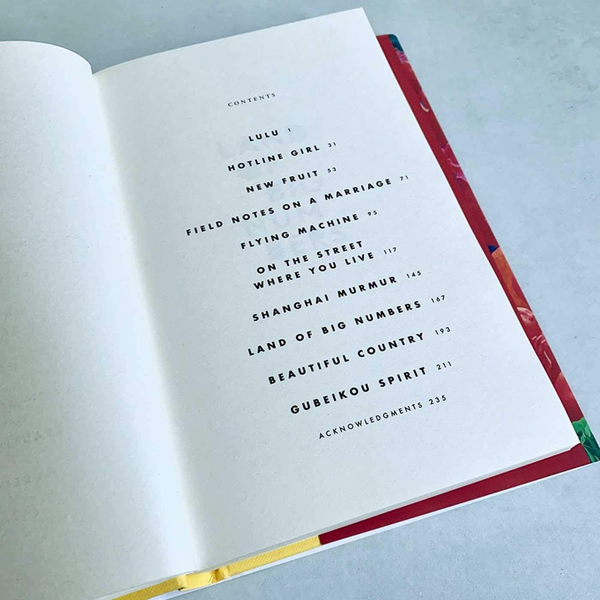 CONTENTS
LULU 1
HOTLINE GIRL 31
NEW FRUIT 53
FIELD NOTES ON A MARRIAGE 71
FLYING MACHINE 95
ON THE STREET
WHERE YOU LIVE 117
SHANGHAI MURMUR 145
LAND OF BIG NUMBERS 167
BEAUTIFUL COUNTRY 193
GUBEIKOU SPIRIT 211
ACKNOWLEDGMENTS 235